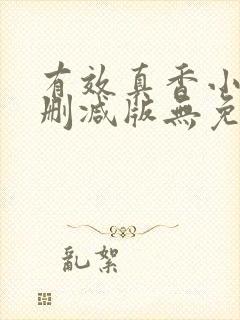 有效真香小
删减版無免
亂絮